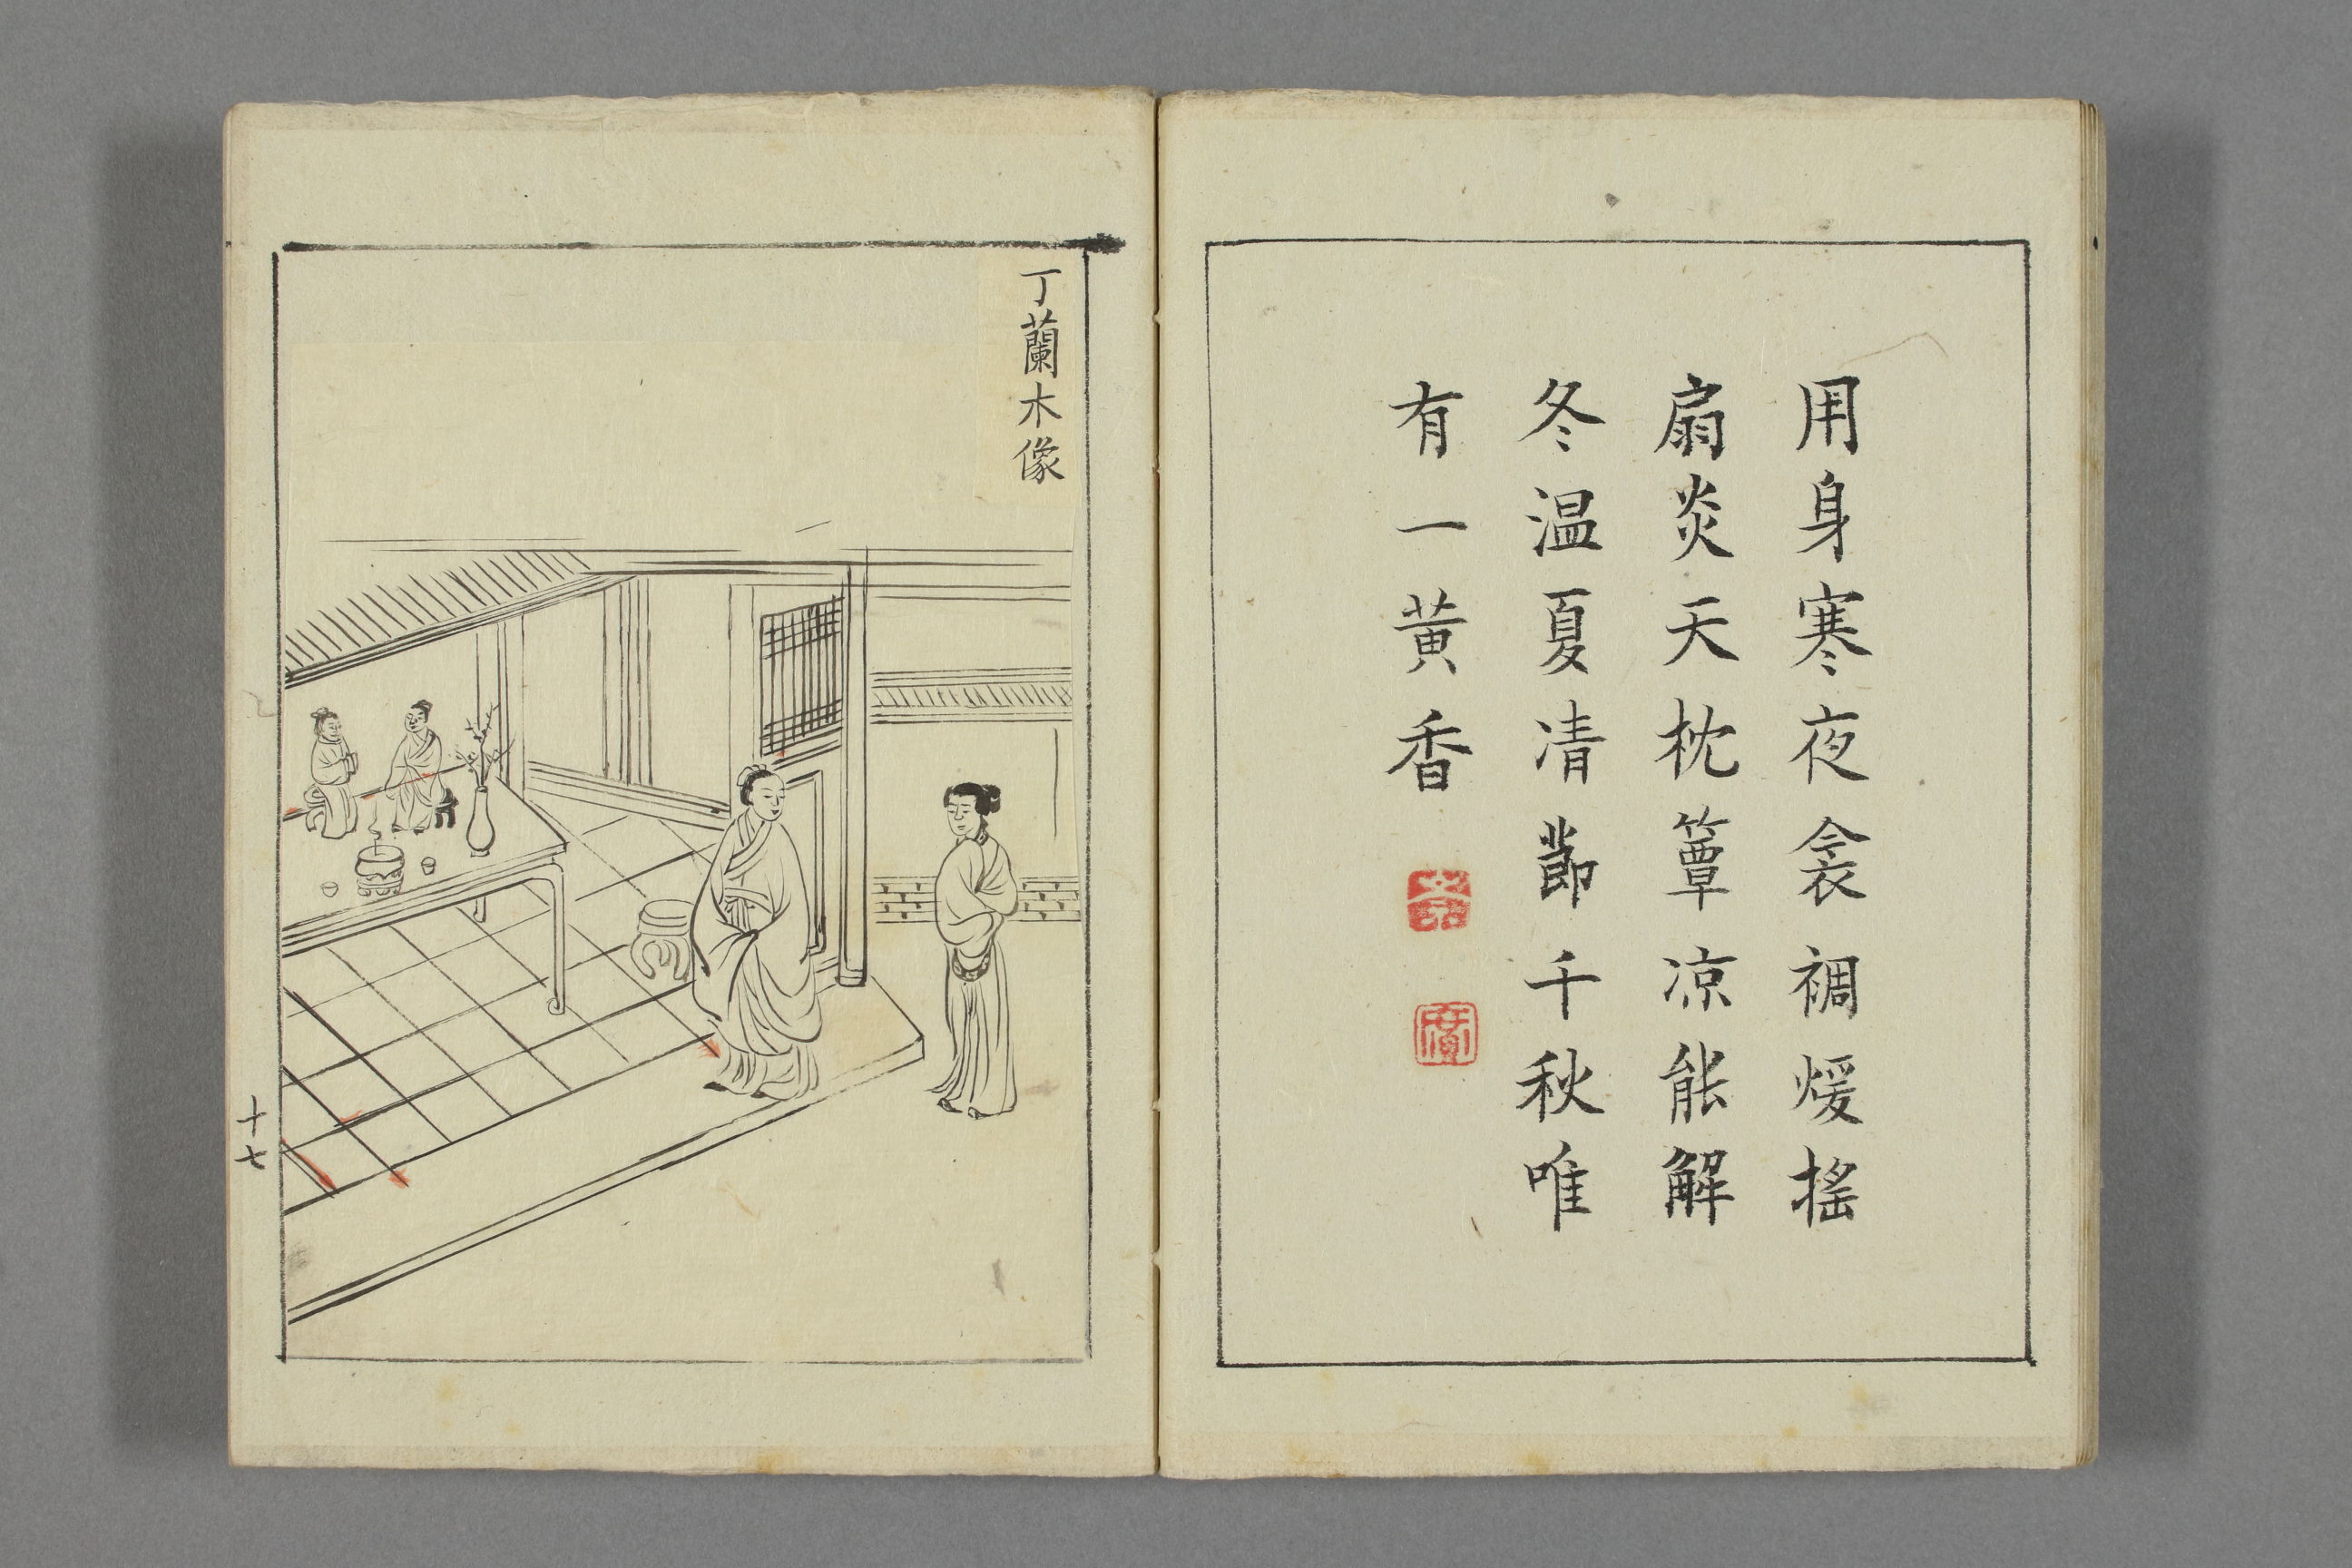 用身寒夜衾裯煖搖
扇炎天枕簟凉能解
冬温夏凊節千秋唯
有一黃香
丁蘭木像
十七